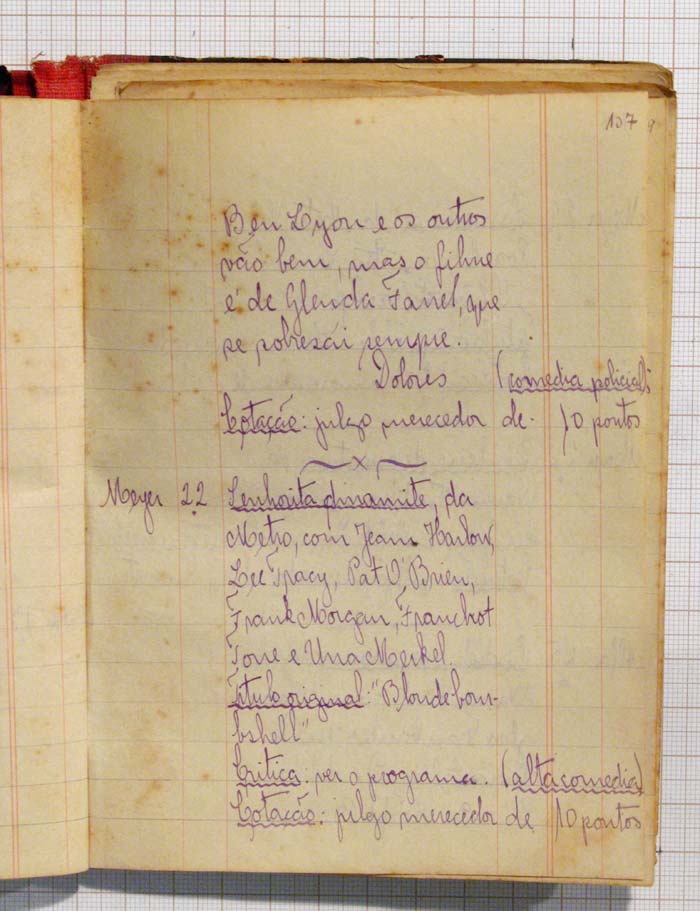 137 9
Ben Lyon e os outros
vão bem, mas o filme
é de Glenda Farrel, que
se sobresái sempre.
Dolores (comedia policial);
Cotação: julgo merecedor de 10 pontos
x
Meyer 22 Senhorita dinamite, da
Metro, com Jean Harlow,
Lee Tracy, Pat O'Brien,
Frank Morgan, Franchot
Tone e Una Merkel.
Titulo original: "Blonde bom-
bshell"
Critica: ver o programa. (alta comedia)
Cotação: julgo merecedor de 10 pontos